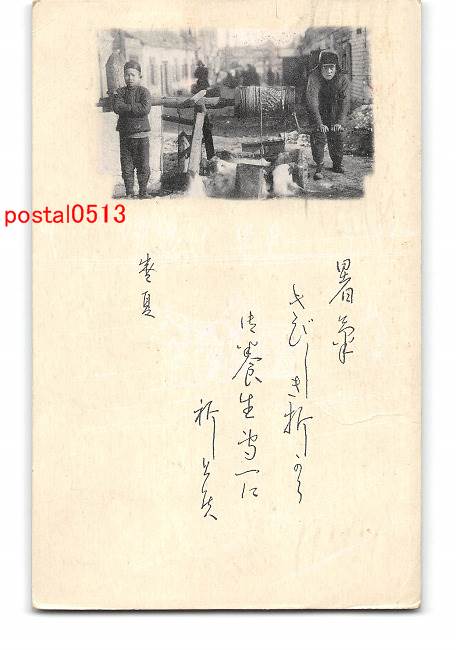 postal0513
暑氣
きびしき折から
御養生専一に
祈上候
盛夏